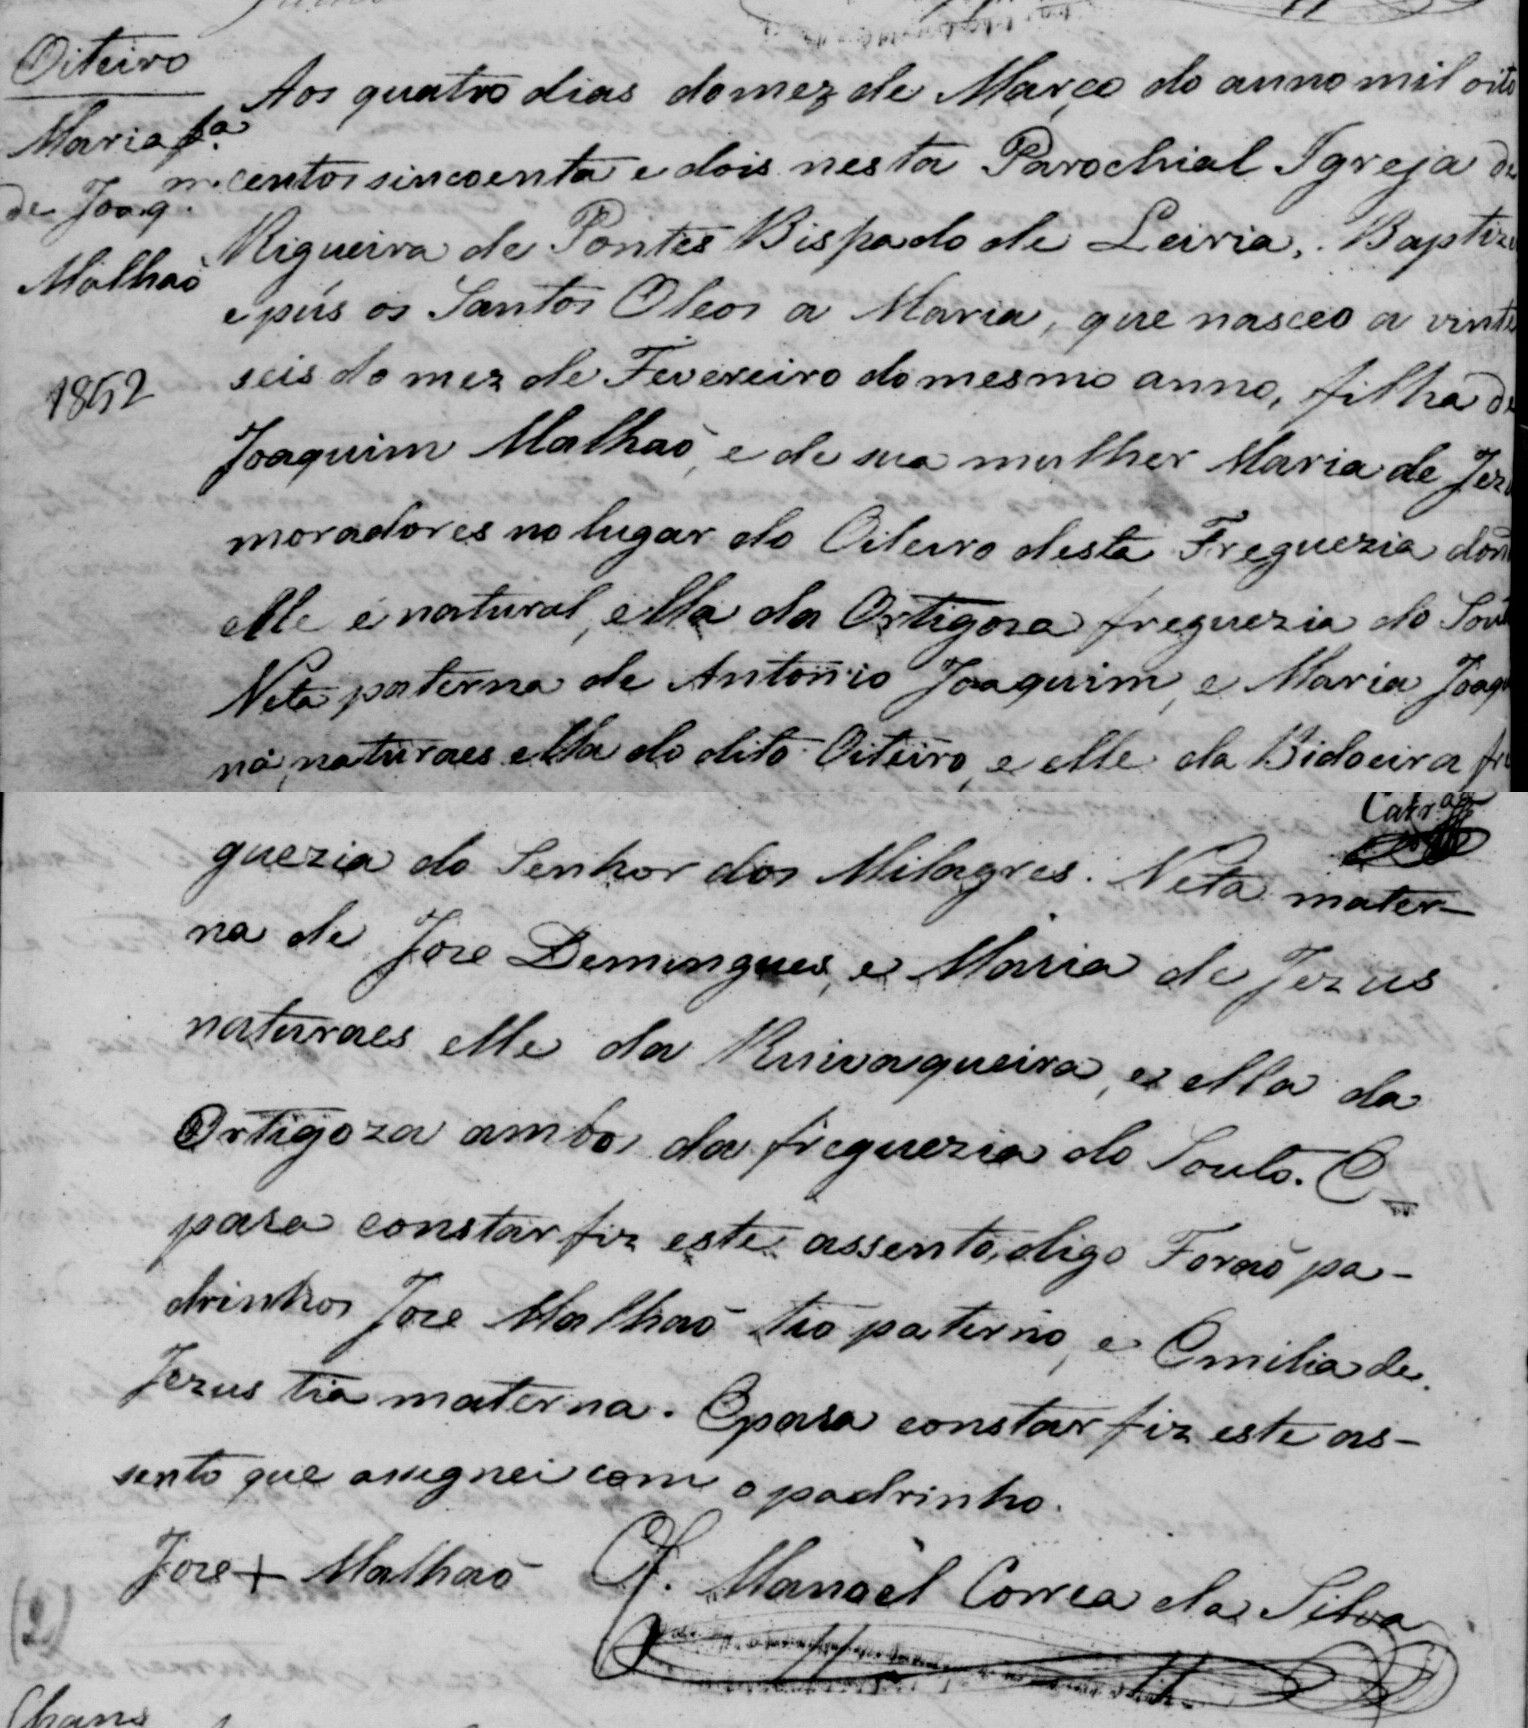 Oiteiro
Maria f.ª
de Joaq.m
Malhaõ
1852
Aos quatro dias do mez de Março do anno mil oito
centos sincoenta e dois nesta Parochial Igreja de
Rigueira de Pontes Bispado de Leiria, Baptize
e pús os Santos Oleos a Maria, que nasceo a vinte
seis do mez de Fevereiro do mesmo anno, filha de
Joaquim Malhaõ, e de sua mulher Maria de Jezu
moradores no lugar do Oiteiro desta Freguezia don
elle é natural, ella da Ortigoza freguezia do Sout
Neta paterna de Antonio Joaquim, e Maria Joaqu
na, naturaes ella do dito Oiteiro, e elle da Bidoeira fre
guezia do Senhor dos Milagres. Neta mater-
na de Joze Domingues, e Maria de Jezus
naturaes elle da Ruivaqueira, e ella da
Ortigoza ambos da freguezia do Souto. E
para constar fiz este assento, digo Foraõ pa-
drinhos Joze Malhaõ tio paterno, e Emilia de
Jezus tia materna. E para constar fiz este as-
sento que assignei com o padrinho.
Joze + Malhaõ
O P. Manoel Correa da Silva
(2)
Chans